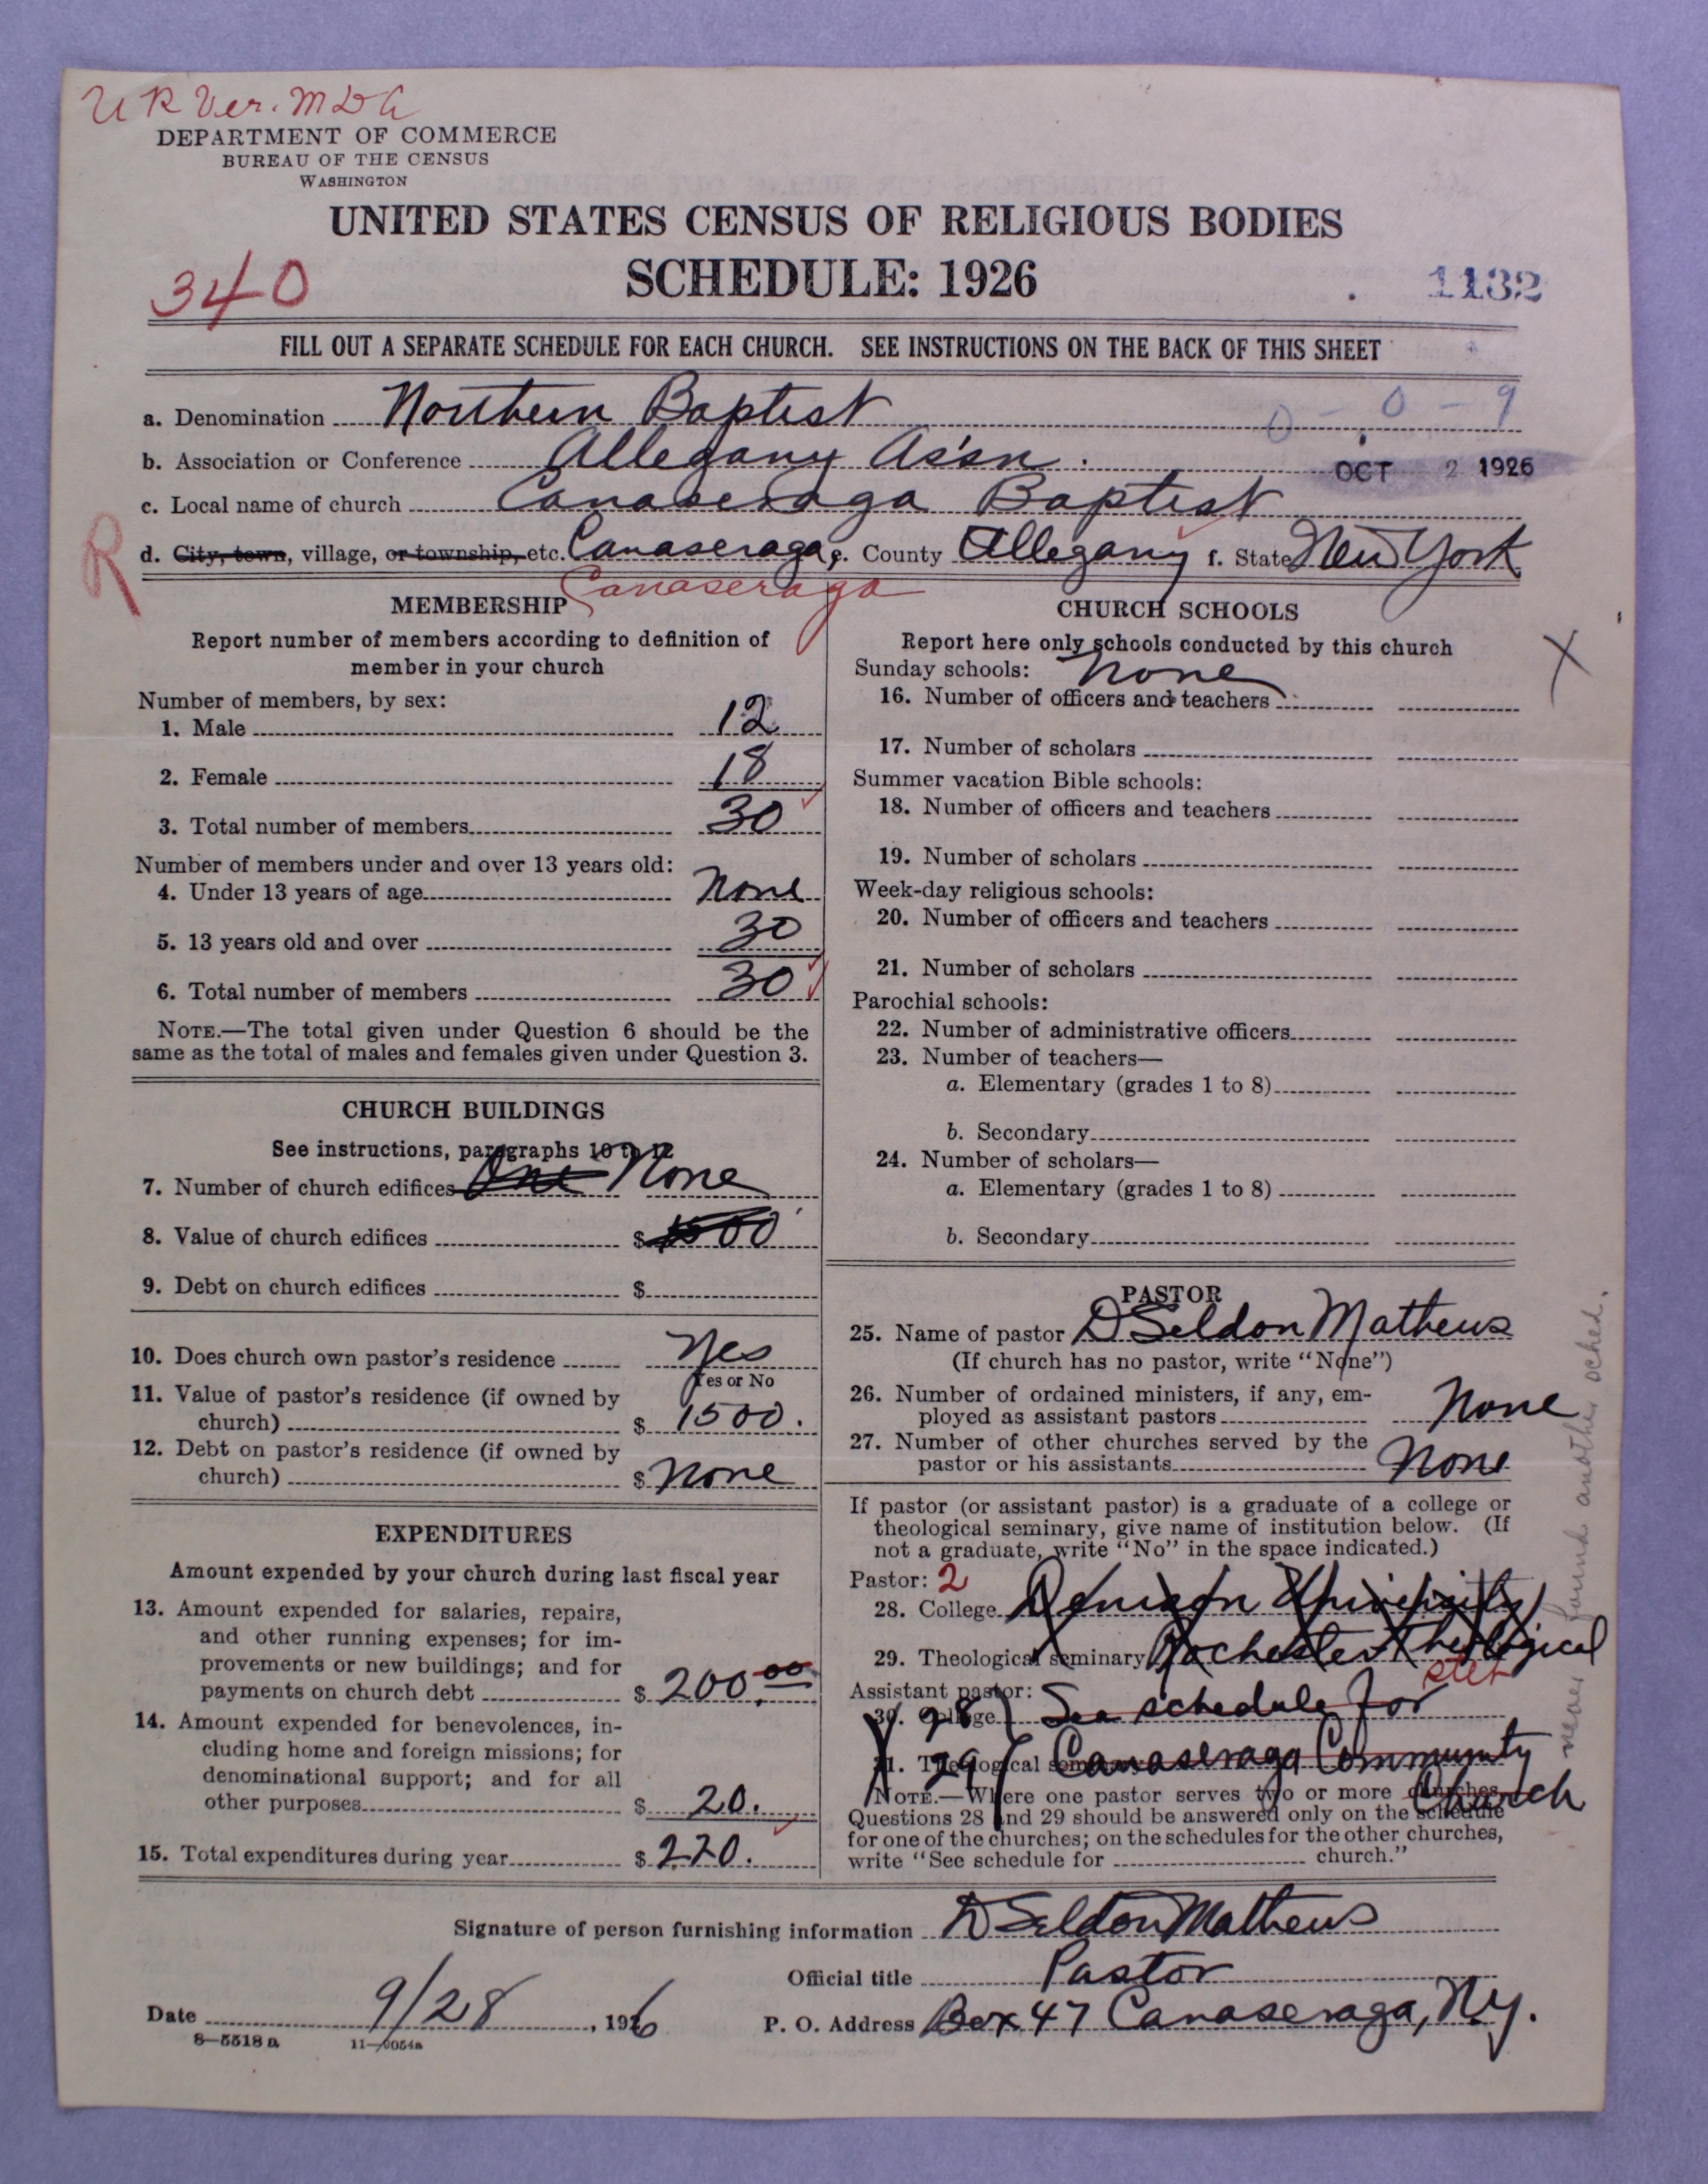 U R Ver. MDG
DEPARTMENT OF COMMERCE
BUREAU OF THE CENSUS
WASHINGTON
UNITED STATES CENSUS OF RELIGIOUS BODIES
SCHEDULE: 1926
340
1132
FILL OUT A SEPARATE SCHEDULE FOR EACH CHURCH. SEE INSTRUCTIONS ON THE BACK OF THIS SHEET
a. Denomination Northern Baptist 0-0-9
b. Association or Conference Allegany Ass'n. OCT 2 1926
c. Local name of church Canaseraga Baptist
R
d. City, town, village, or township, etc. Canaseraga, e. County Allegany f. State New York
Canaseraga
MEMBERSHIP
Report number of members according to definition of
member in your church
Number of members, by sex:
1. Male 12
2. Female 18
3. Total number of members 30
Number of members under and over 13 years old:
4. Under 13 years of age None
5. 13 years old and over 30
6. Total number of members 30
NOTE.—The total given under Question 6 should be the
same as the total of males and females given under Question 3.
CHURCH BUILDINGS
See instructions, paragraphs 10 to 12
7. Number of church edifices One None
8. Value of church edifices $ 1500
9. Debt on church edifices $
10. Does church own pastor's residence Yes
Yes or No
11. Value of pastor's residence (if owned by
church) $ 1500.
12. Debt on pastor's residence (if owned by
church) $ None
EXPENDITURES
Amount expended by your church during last fiscal year
13. Amount expended for salaries, repairs,
and other running expenses; for im-
provements or new buildings; and for
payments on church debt $ 200.00
14. Amount expended for benevolences, in-
cluding home and foreign missions; for
denominational support; and for all
other purposes $ 20.
15. Total expenditures during year $ 220.
CHURCH SCHOOLS
Report here only schools conducted by this church
X
Sunday schools: None
16. Number of officers and teachers
17. Number of scholars
Summer vacation Bible schools:
18. Number of officers and teachers
19. Number of scholars
Week-day religious schools:
20. Number of officers and teachers
21. Number of scholars
Parochial schools:
22. Number of administrative officers
23. Number of teachers—
a. Elementary (grades 1 to 8)
b. Secondary
24. Number of scholars—
a. Elementary (grades 1 to 8)
b. Secondary
PASTOR
25. Name of pastor D Seldon Mathews
(If church has no pastor, write "None")
26. Number of ordained ministers, if any, em-
ployed as assistant pastors None
27. Number of other churches served by the
pastor or his assistants None
If pastor (or assistant pastor) is a graduate of a college or
theological seminary, give name of institution below. (If
not a graduate, write "No" in the space indicated.)
Pastor: 2
28. College Denison University
29. Theological seminary Rochester Theological
stet
Assistant pastor:
30. College 28 See schedule for
31. Theological seminary 29 Canaseraga Community
Church
NOTE.—Where one pastor serves two or more churches,
Questions 28 and 29 should be answered only on the schedule
for one of the churches; on the schedules for the other churches,
write "See schedule for church."
never found another sched.
Signature of person furnishing information D Seldon Mathews
Official title Pastor
Date 9/28, 1926
P. O. Address Box 47 Canaseraga, N.y.
8—5518 a